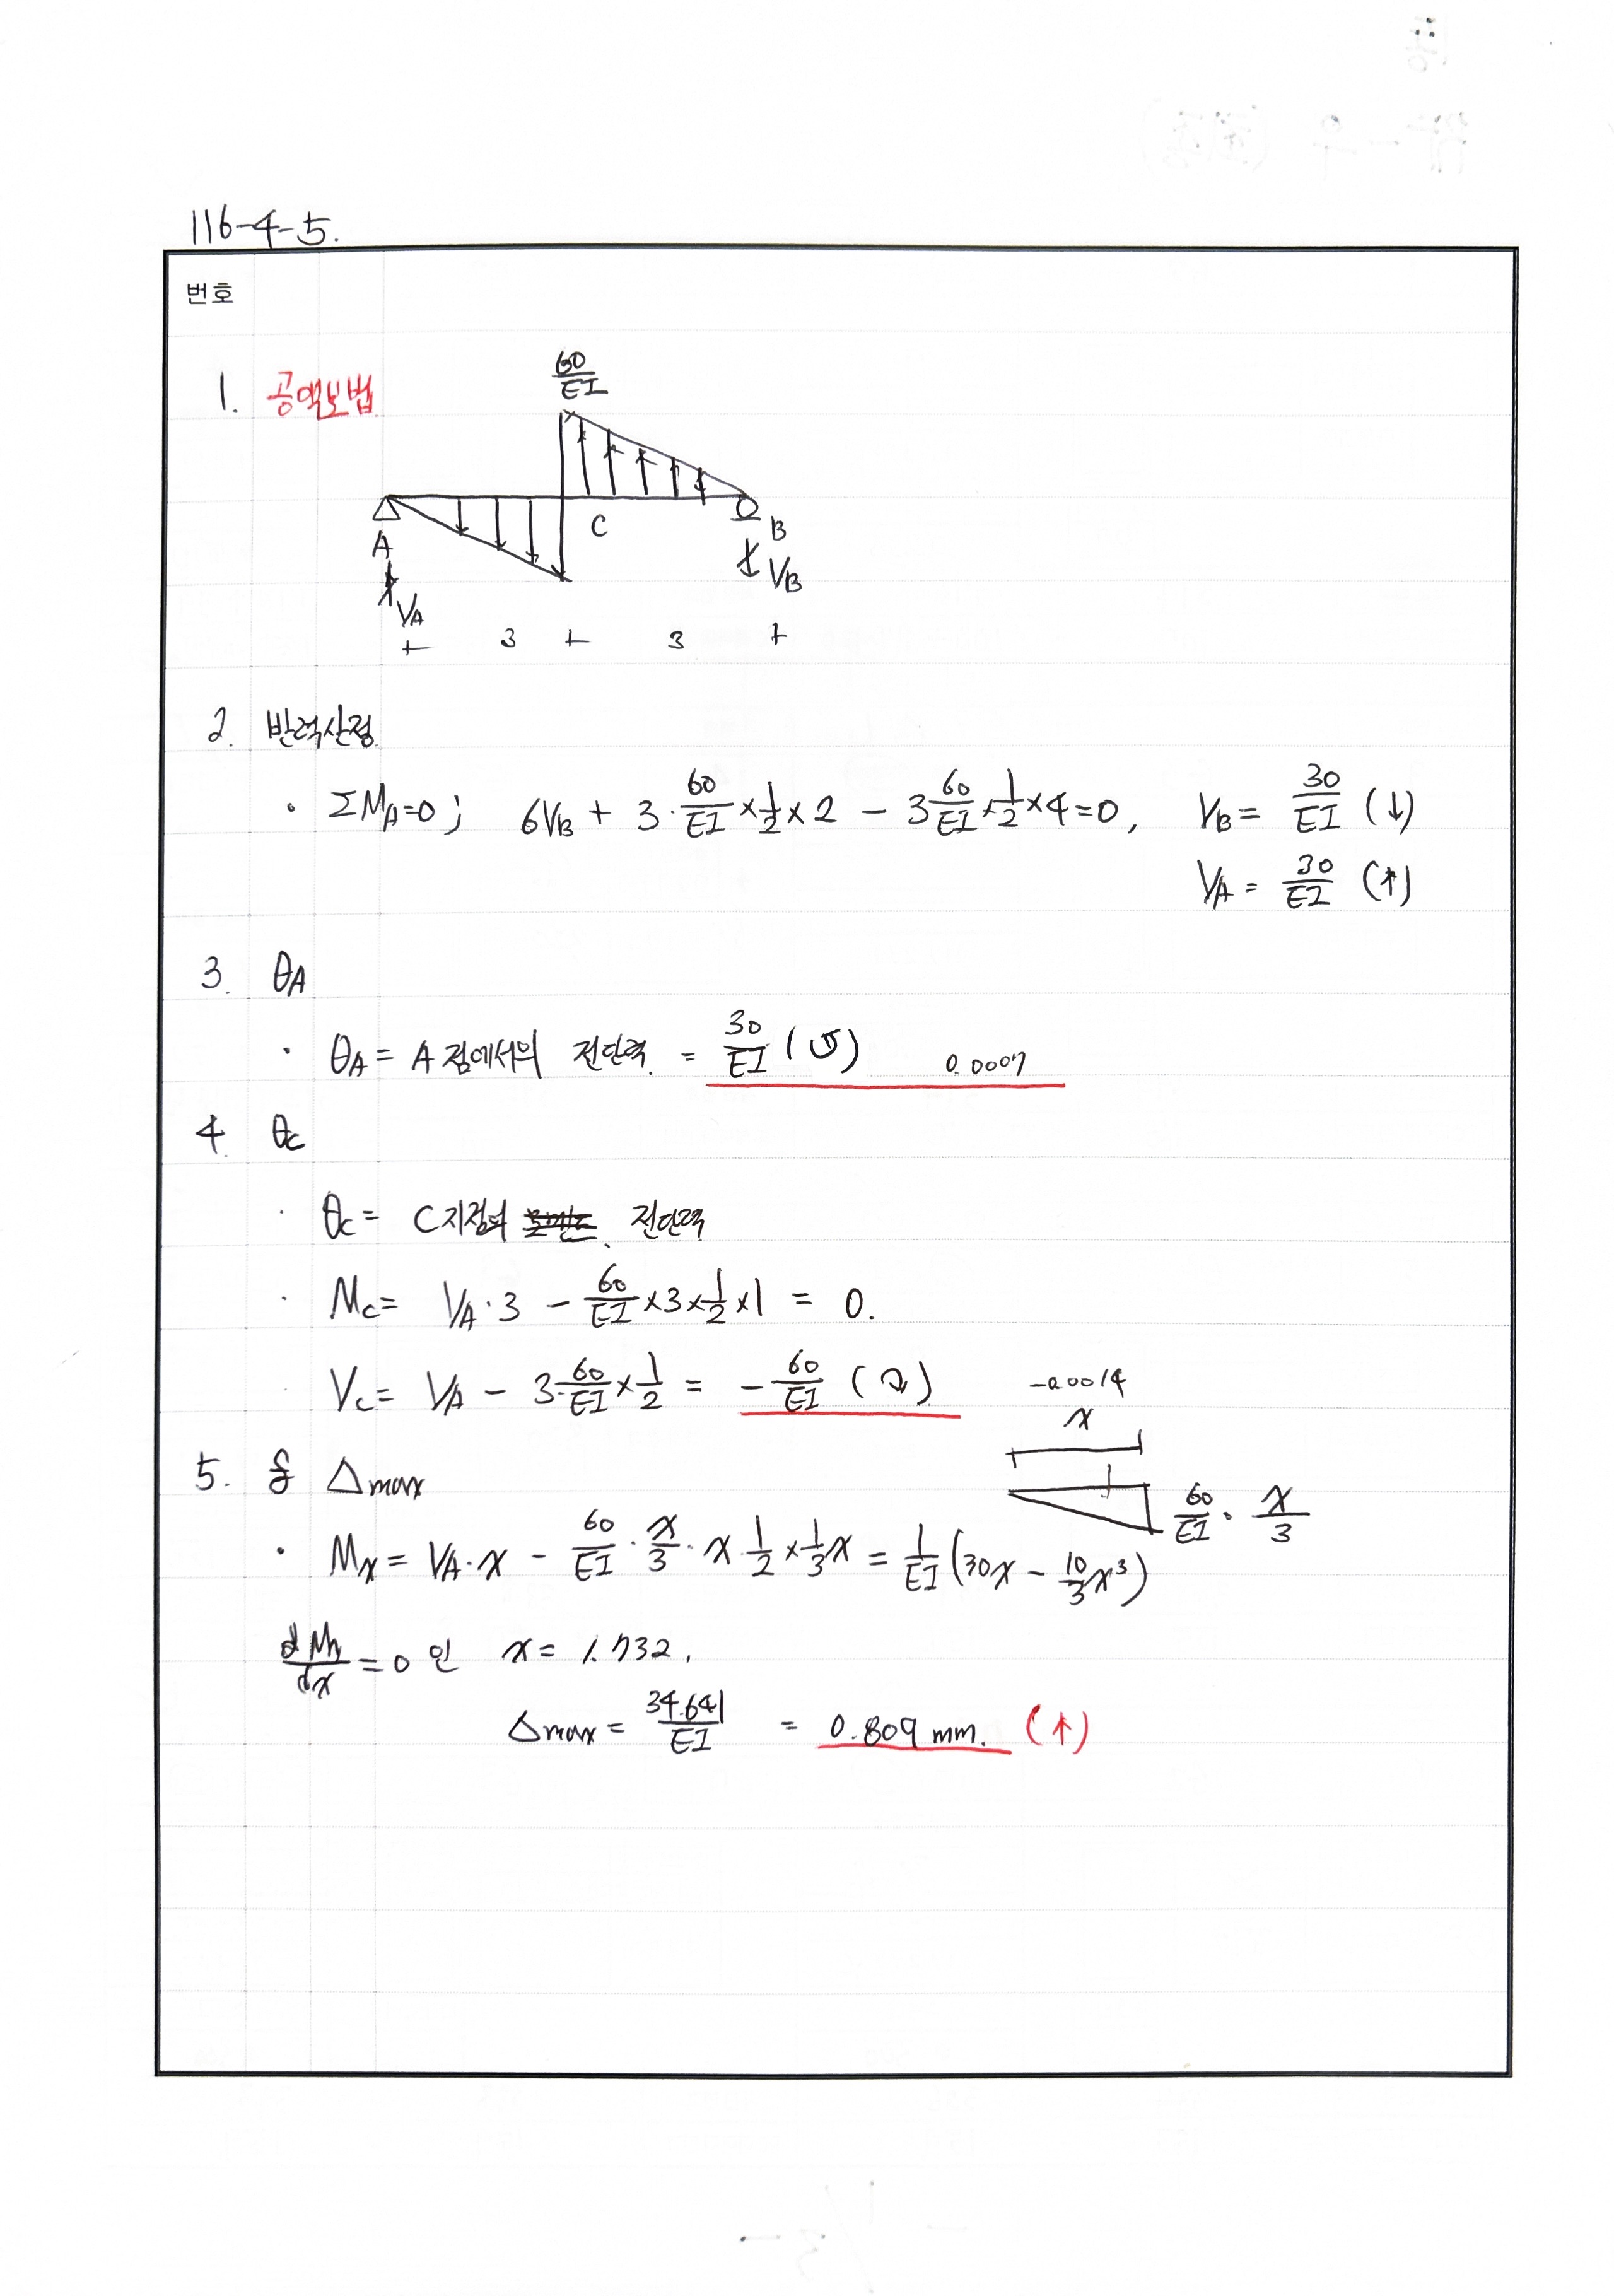 116-4-5.
번호
1. 공액보법
60/EI
A C B
VA VB
3 3
2. 반력산정
· ΣMA=0 ; 6VB + 3·60/EI×1/2×2 − 3 60/EI×1/2×4=0, VB= 30/EI (↓)
VA = 30/EI (↑)
3. θA
· θA = A점에서의 전단력 = 30/EI (↺) 0.0007
4. θc
· θc = C지점의 전단력
· Mc= VA·3 − 60/EI×3×1/2×1 = 0.
· Vc= VA − 3·60/EI×1/2 = −60/EI (↷) −0.0014
x
5. Δmax
60/EI · x/3
· Mx= VA·x − 60/EI·x/3·x·1/2×1/3x = 1/EI(30x − 10/3x³)
dMx/dx=0 인 x= 1.732,
Δmax = 34.641/EI = 0.809 mm. (↑)